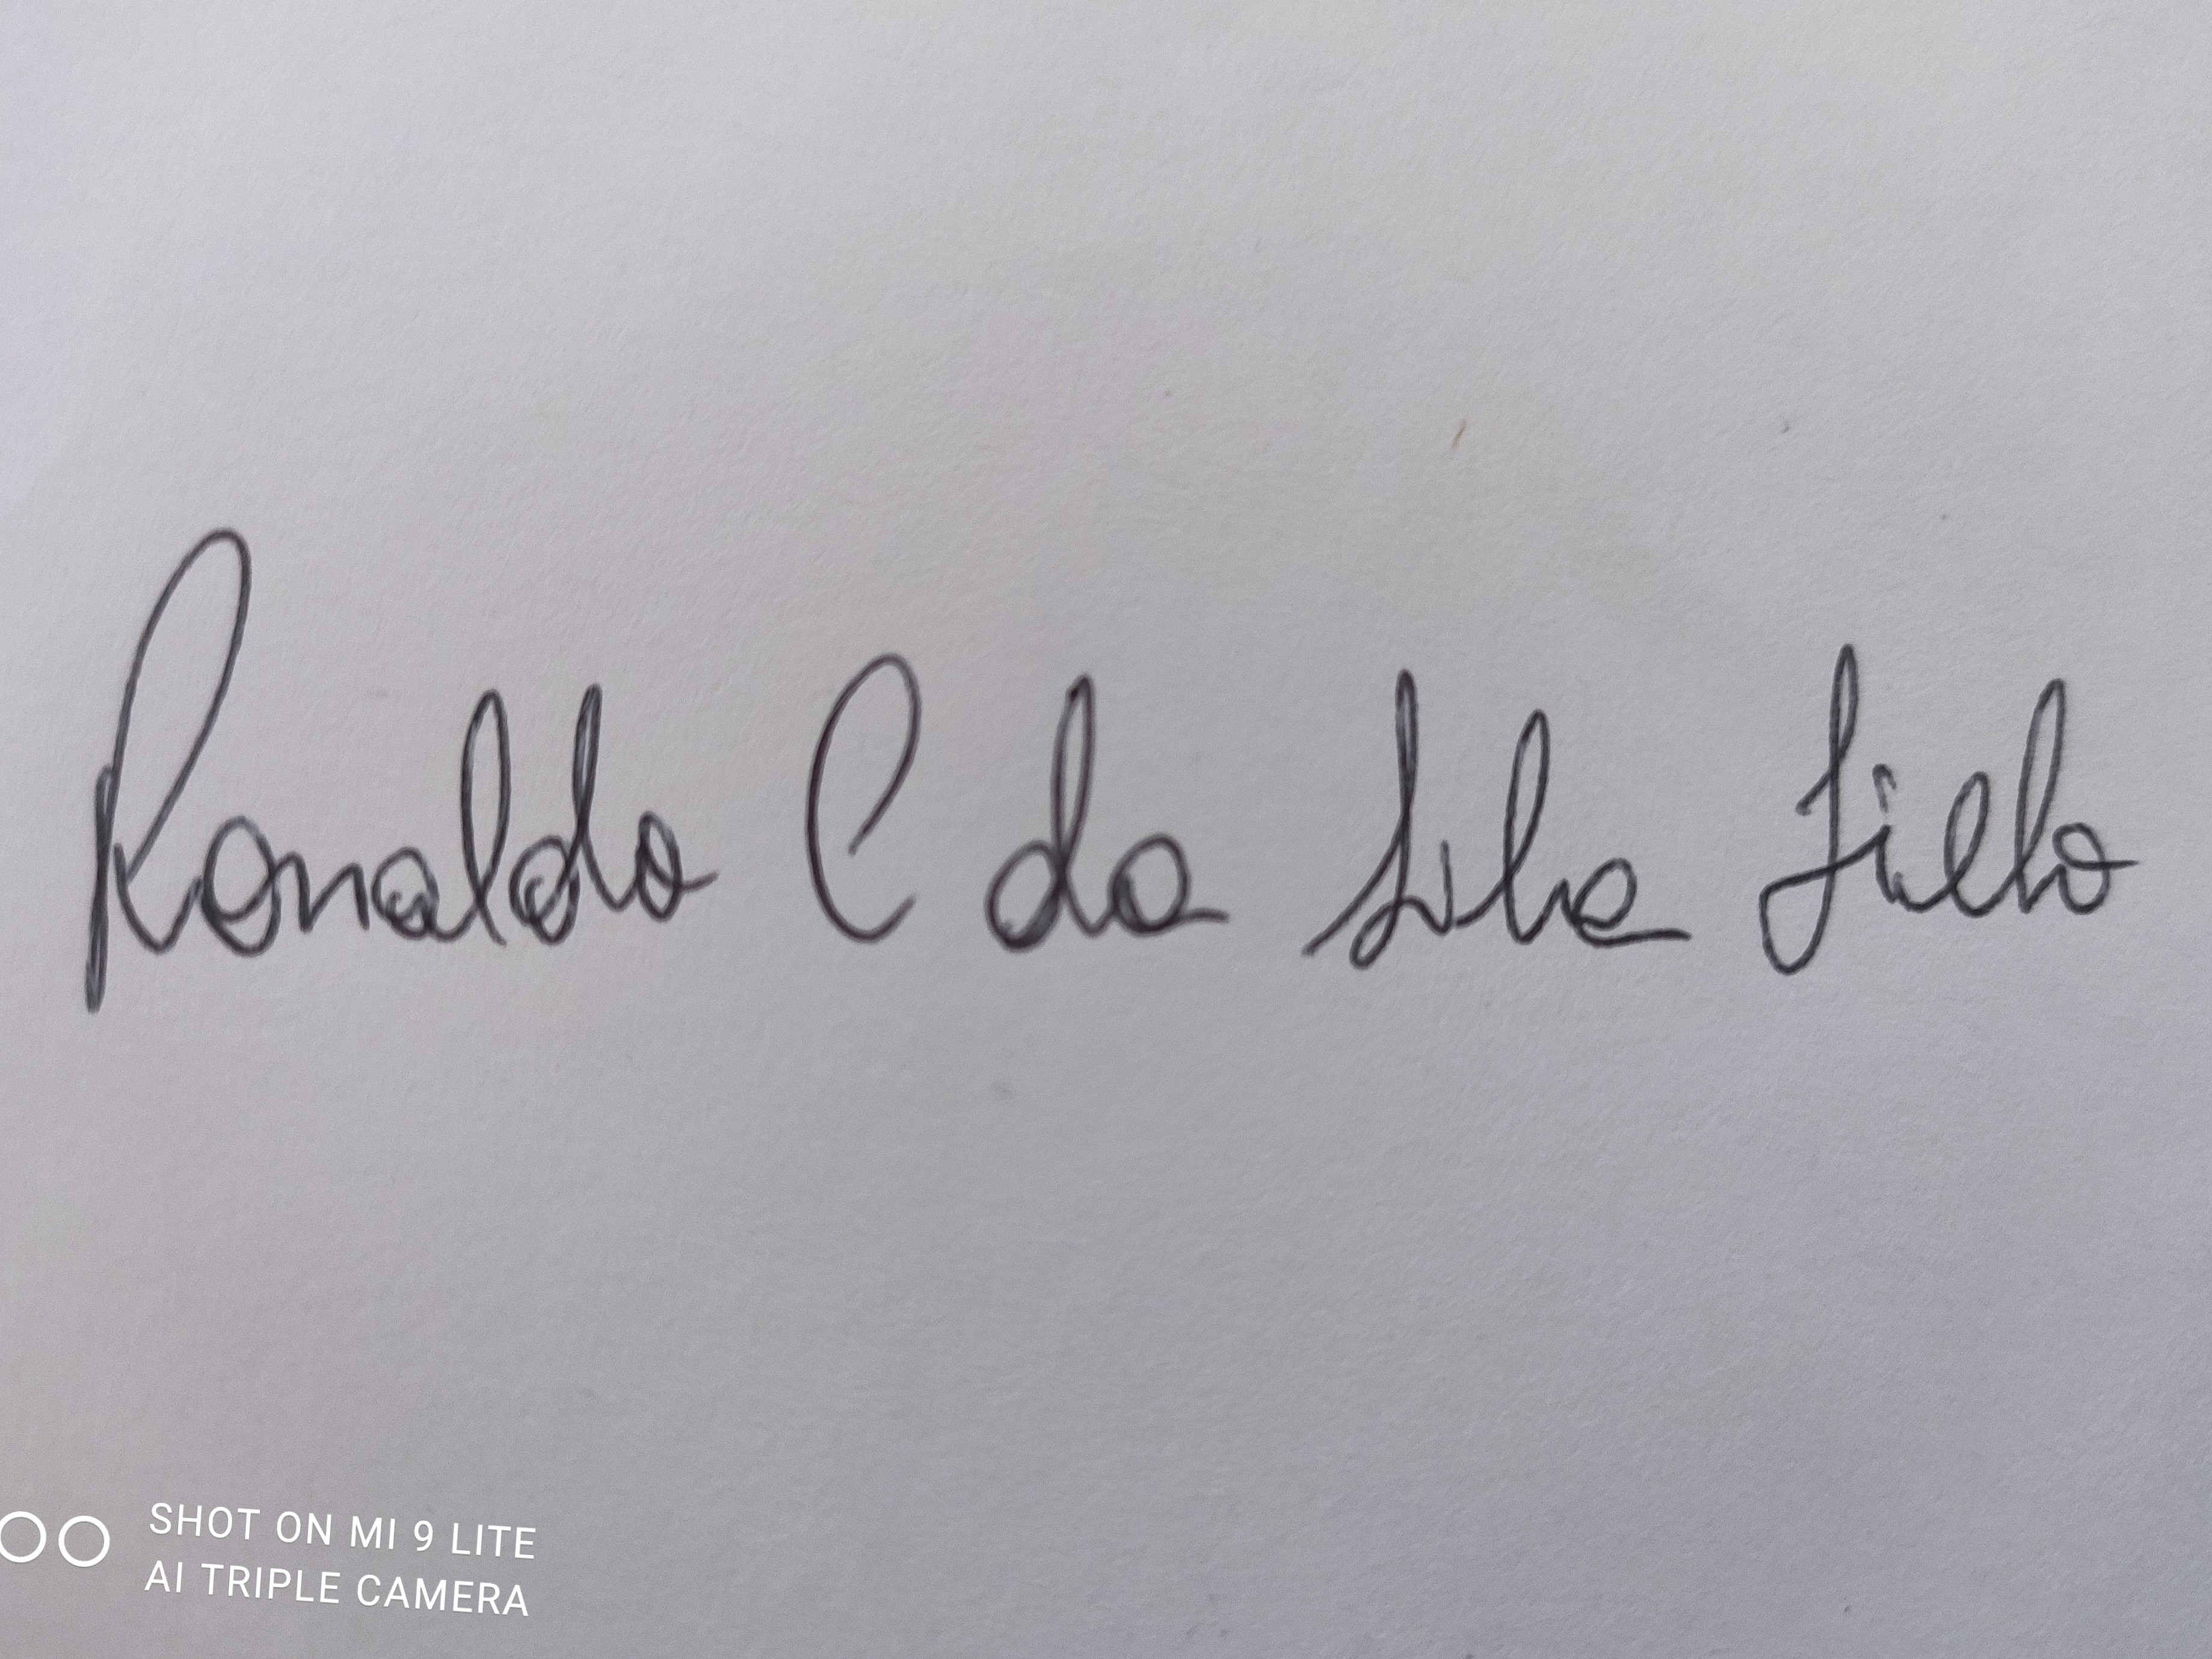 Ronaldo C da Silva Filho
SHOT ON MI 9 LITE
AI TRIPLE CAMERA